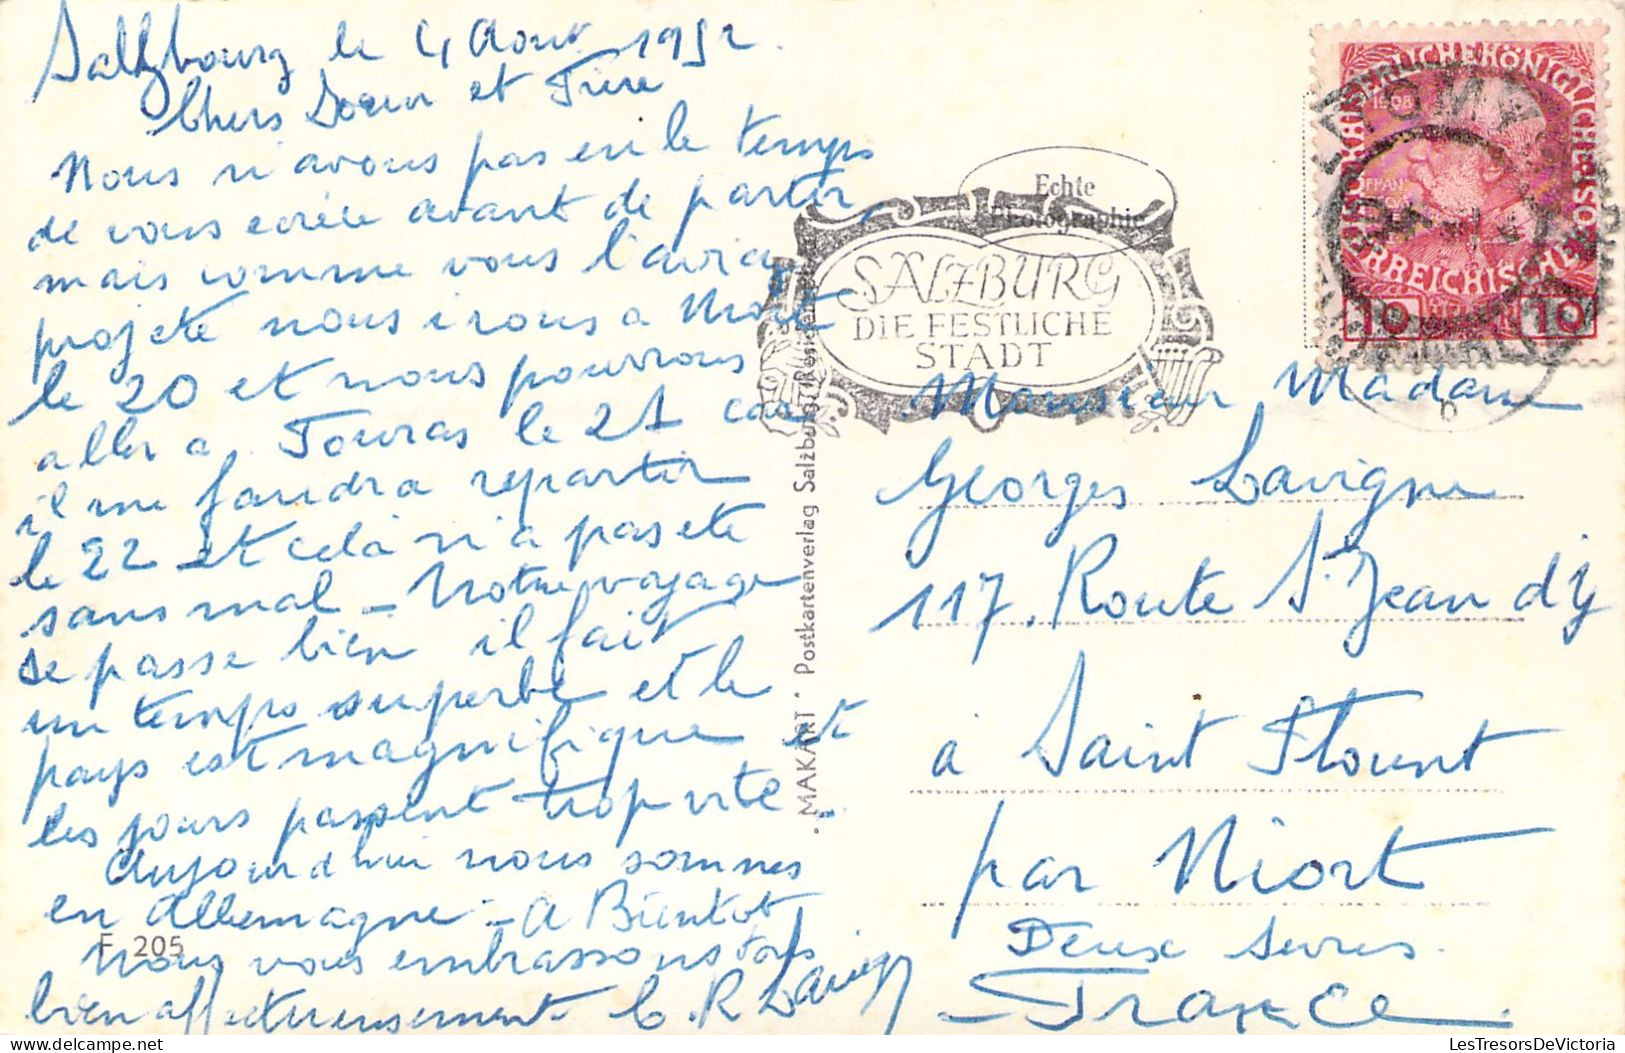 Salzbourg le 4 Aout 1952.
Chers Soeur et Frère
Nous n'avons pas eu le temps
de vous ecrire avant de partir,
mais comme vous l'avia
projeté nous irons a Niort
le 20 et nous pourrons
aller a Touras le 21 car
il me faudra repartir
le 22 et celà n'a pas eté
sans mal - Notre voyage
se passe bien il fait
un temps superbe et le
pays est magnifique et
les jours passent trop vite -
Aujourd'hui nous sommes
en Allemagne - A Bientot
nous vous embrassons tous
bien affectueusement G. R Lavigne
F 205
"MAKART" Postkartenverlag Salzburg, Residenz
Echte
Photographie
SALZBURG
DIE FESTLICHE
STADT
KAISERLICHE KÖNIGLICHE
1908
ÖSTERREICHISCHE
10 10
Monsieur Madame
Georges Lavigne
117. Route St Jean d'Y
à Saint Flourent
par Niort
Deux Sevres.
France
LesTresorsDeVictoria
delcampe.net